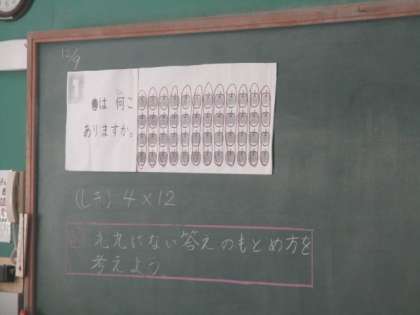 12/9
1
●は 何こ
ありますか。
(しき) 4×12
九九にない答えのもとめ方を
考えよう